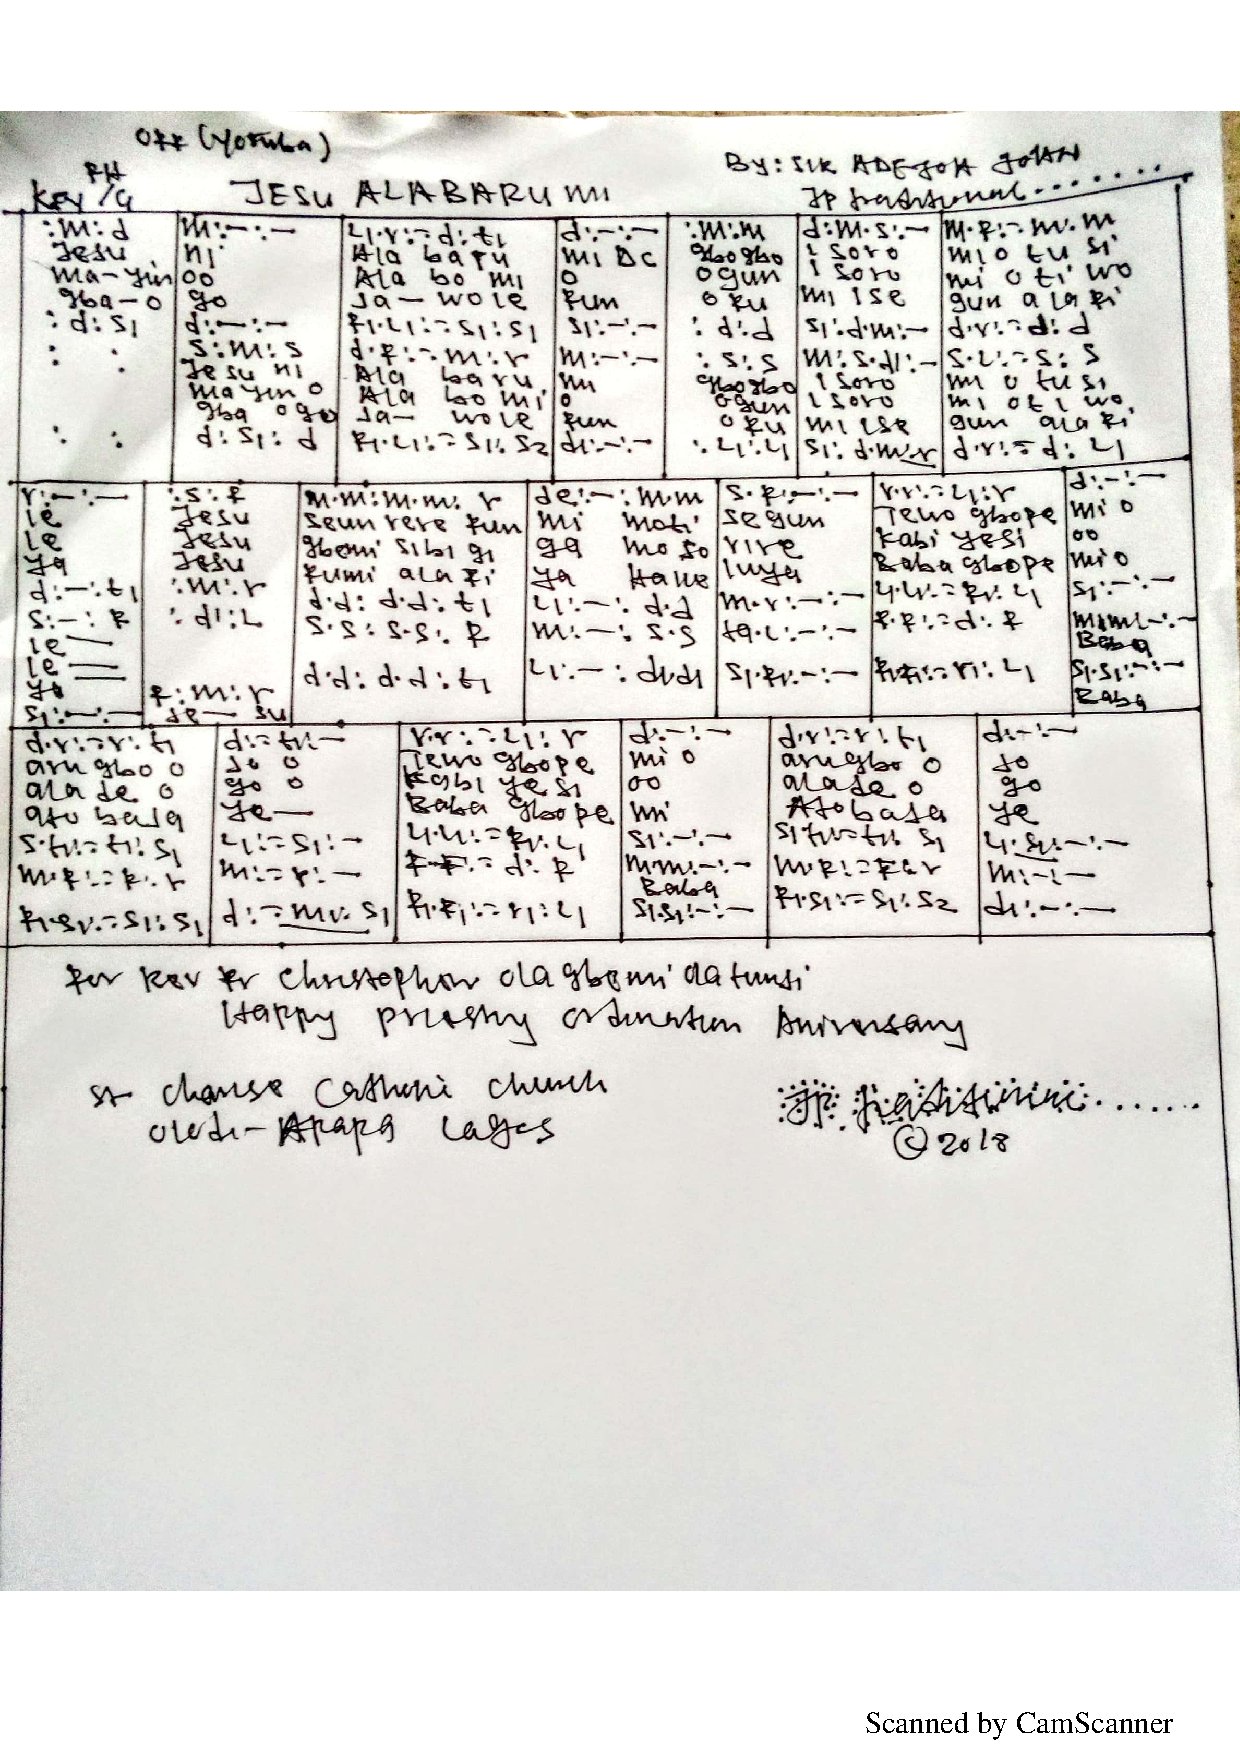 OFF (Yoruba)
BY: SIR ADEJOH JOHN
KEY FH/G JESU ALABARU MI JP traditional.......
:m:d m:-:- l1.r:-d:t1 d:-:- :m:m d:m.s:- m.f:-m:m
Jesu ni Ala baru mi Dc gbogbo isoro mi o tu si
ma-yin oo Ala bo mi o ogun isoro mi o ti wo
gba-o go Ja-wole fun oku mi ise gun ala fi
:d:s1 d:-:- f1.l1:-s1:s1 s1:-:- :d:d s1:d.m:- d.r:-d:d
: : s:m:s d.f:-m:r m:-:- :s:s m:s.d1:- s.l:-s:s
Jesu ni Ala baru mi gbogbo isoro mi o tu si
mayin o Ala bo mi o ogun isoro mi o ti wo
gba ogo Ja- wole fun oku mi ise gun ala fi
: : d:s1:d f1.l1:-s1:s2 d1:-:- :l1:l1 s1:d.m.r d.r:-d:l1
r:-:- :s:f m.m:m.m:r de:-:m.m s.f:-:- r.r:-l1:r d:-:-
le Jesu seun rere fun mi moti segun Tewo gbope mi o
le Jesu gbemi sibi gi ga mo so rire kabi yesi oo
ya Jesu fumi ala fi ya Halle luya Baba gbope mi o
d:-:t1 :m:r d.d:d.d:t1 l1:-:d.d m.r:-:- l1.l1:-f1:l1 s1:-:-
s:-:f :d1:l s.s:s.s:f m:-:s.s ta.l:-:- f.f:-d:f m.m:-:-
le- Baba
le- d.d:d.d:t1 l1:-:d1d1 s1.f1:-:- f1.f1:-r1:l1 s1.s1:-:-
ya f:m:r Baba
s1:-:- Je-su
d.r:-r:t1 d:-t1:- r.r:-l1:r d:-:- d.r:-r:t1 d:-:-
arugbo o jo o Tewo gbope mi o arugbo o jo
alade o go o Kabi yesi oo alade o go
ato baja ye- Baba gbope mi Ato baja ye
s.t1:-t1:s1 l1:-s1:- l1.l1:-f1:l1 s1:-:- s1.t1:-t1:s1 l1.s1:-:-
m.f:-f:r m:-r:- f.f:-d:f m.m:-:- m.f:-f:r m:-:-
Baba
f1.s1:-s1:s1 d:-m1:s1 f1.f1:-r1:l1 s1.s1:-:- f1.s1:-s1:s2 d1:-:-
for Rev Fr Christopher olagbemi datunsi
Happy priestly ordination Aniversary
st Charse Catholic church
olodi-Apapa Lagos
JP traditional.......
© 2018
Scanned by CamScanner